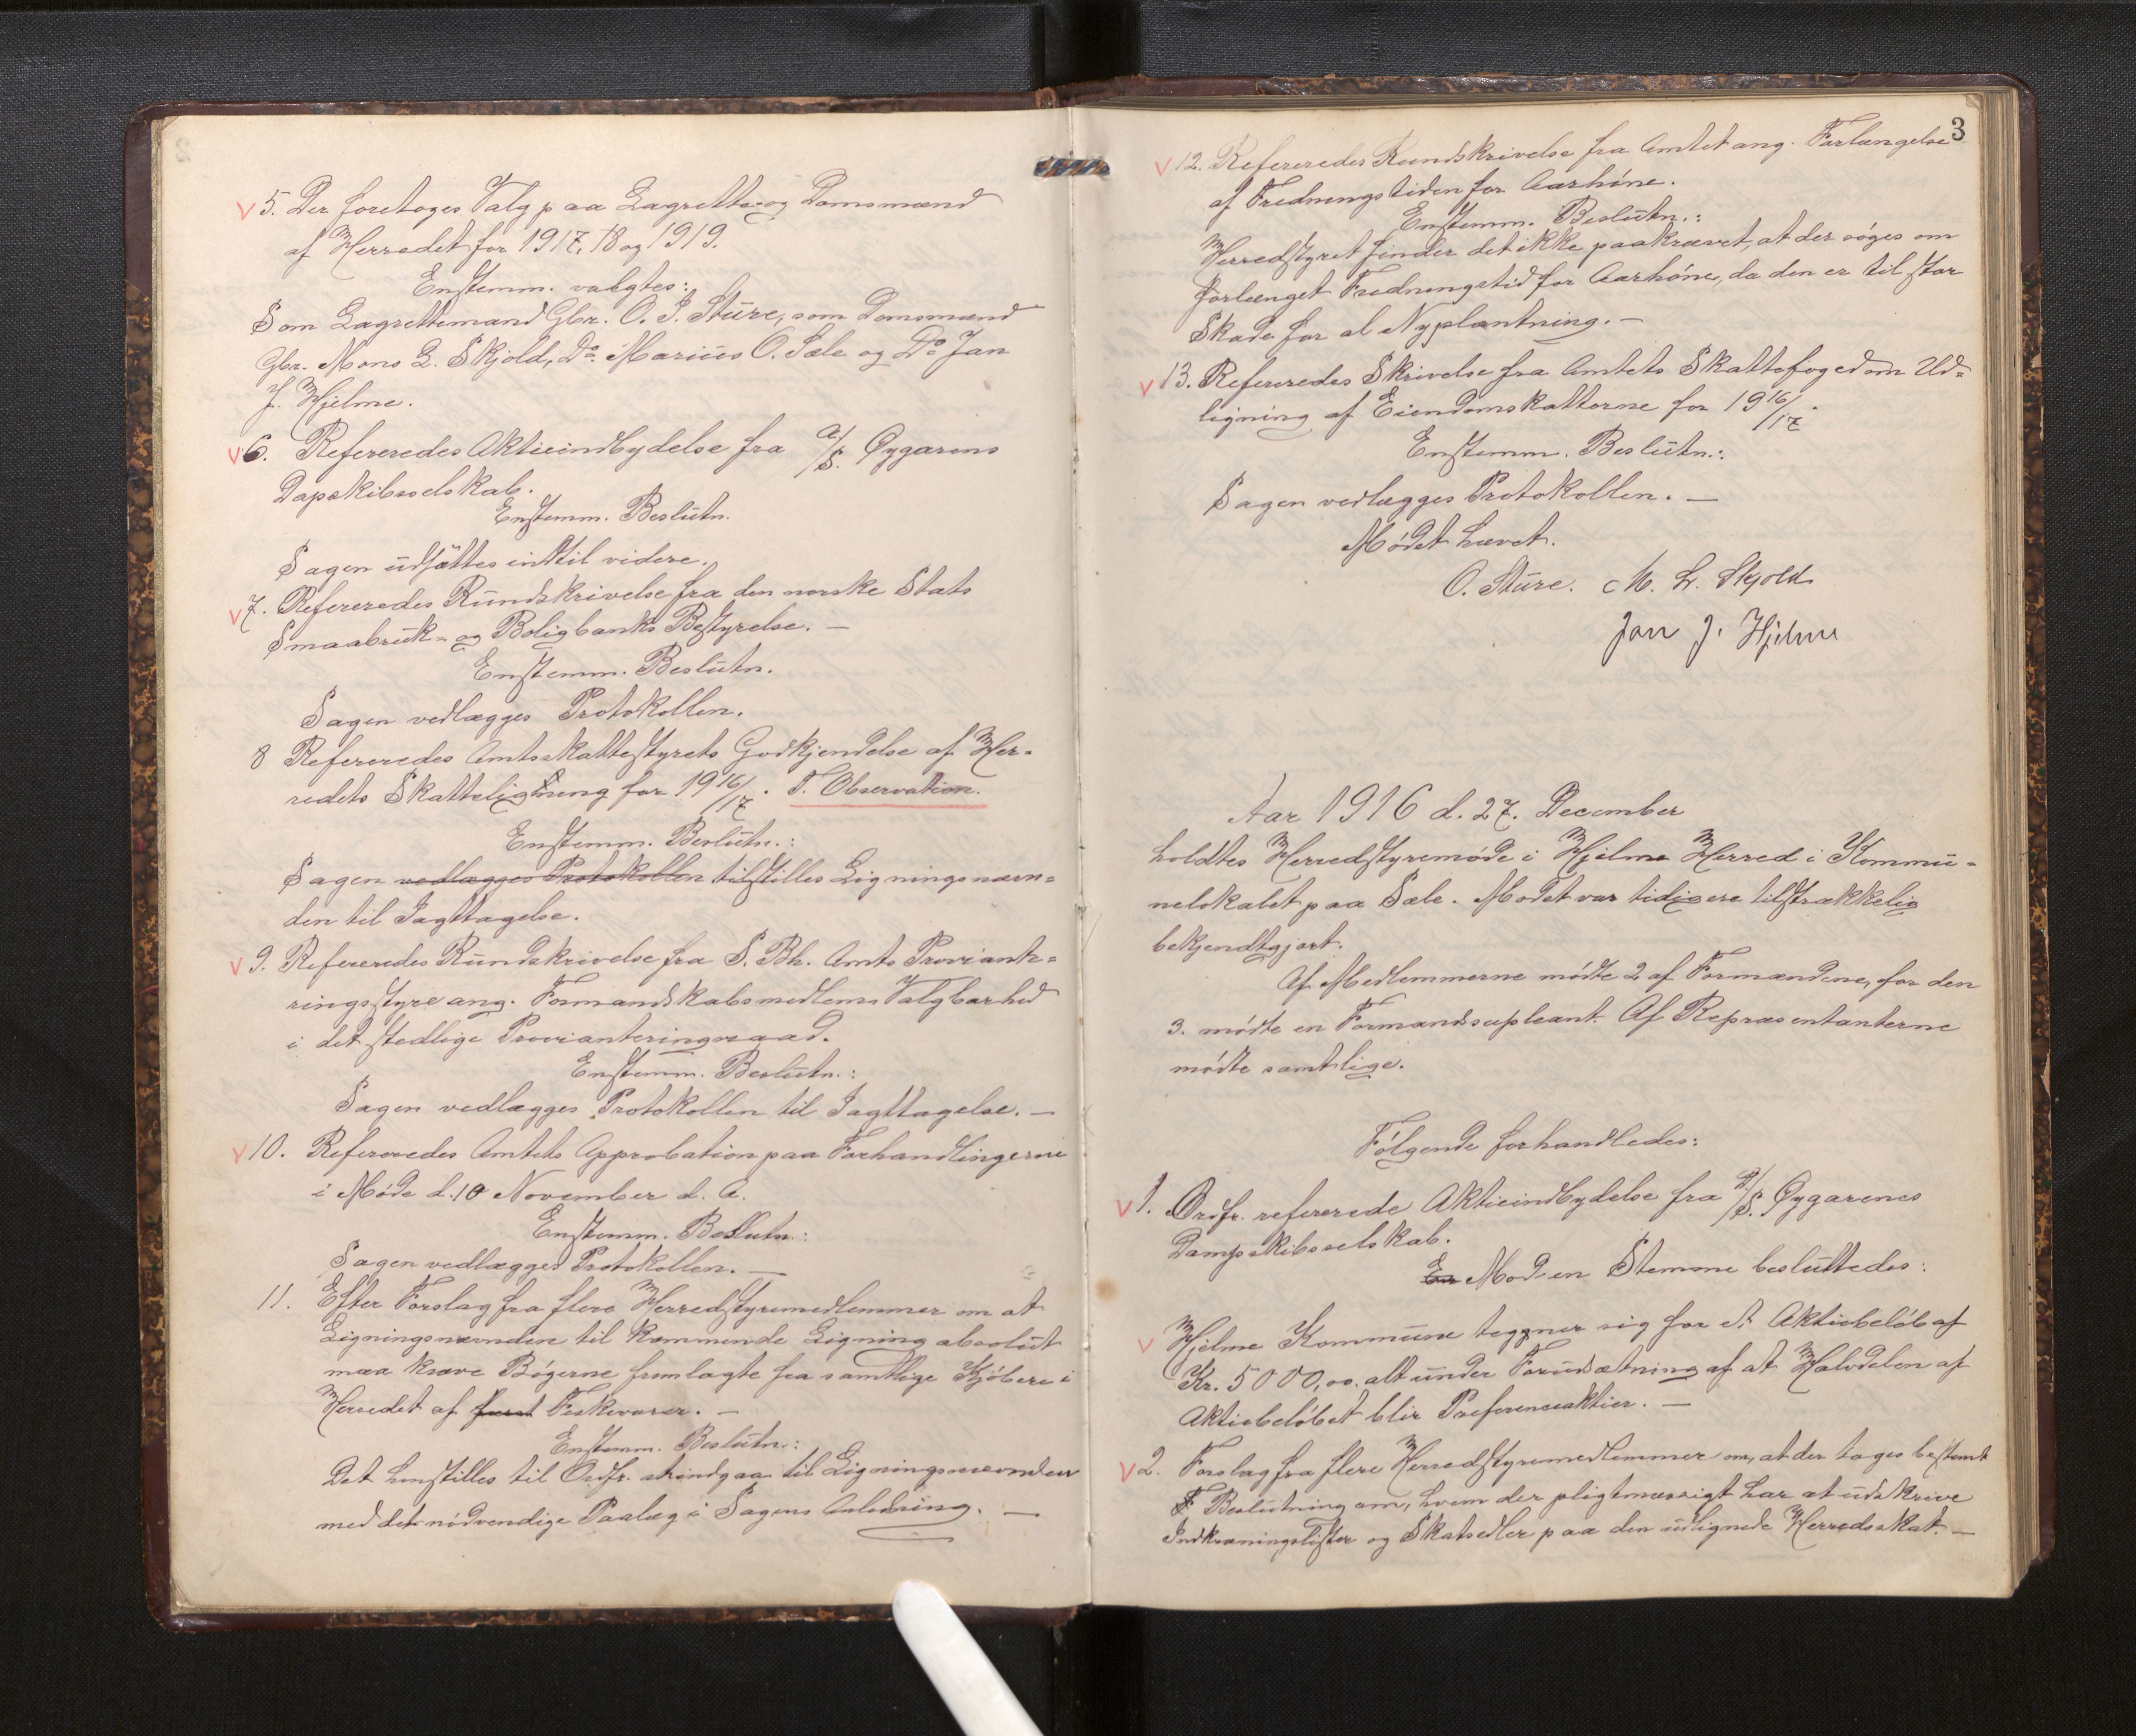 5. Der foretoges Valg paa Lagrette- og Domsmænd
af Herredet for 1917, 18 og 1919.
Enstemm. valgtes:
Som Lagrettemand Gbr. O. J. Sture, som Domsmænd
Gbr. Mons L. Skjold, Do. Marius O. Sæle og Do. Jan
J. Hjelme.
6. Refereredes Aktieindbydelse fra A/S. Øygarens
Dapskibsselskab.
Enstemm. Beslutn.
Sagen udsættes indtil videre.
7. Refereredes Rundskrivelse fra den norske Stats
Smaabruk- og Boligbanks Bestyrelse. —
Enstemm. Beslutn.
Sagen vedlægges Protokollen.
8 Refereredes Amtsskattestyrets Godkjendelse af Her-
redets Skatteligning for 1916/17. T. Observation.
Enstemm. Beslutn.:
Sagen vedlægges Protokollen tilstilles Ligningsnævn-
den til Iagttagelse.
9. Refereredes Rundskrivelse fra S. Bh. Amts Proviante-
ringsstyre ang. Formandskabsmedlems Valgbarhed
i det stedlige Provianteringsraad.
Enstemm. Beslutn.:
Sagen vedlægges Protokollen til Iagttagelse. —
10. Refereredes Amtets Approbation paa Forhandlingerne
i Møde d. 10 November d. A.
Enstemm. Beslutn:
Sagen vedlægges Protokollen. —
11. Efter Forslag fra flere Herredstyremedlemmer om at
Ligningsnævnden til kommende Ligning absolut
maa kræve Bøgerne fremlagte fra samtlige Kjøbere i
Herredet af Fiskevarer. —
Enstemm. Beslutn.:
Det henstilles til Ordfr. at indgaa til Ligningsnævnden
med det nødvendige Paalæg i Sagens Anledning. —
3
12. Refereredes Rundskrivelse fra Amtet ang. Forlængelse
af Fredningstiden for Aarhøne.
Enstemm. Beslutn.:
Herredstyret finder det ikke paakrævet, at der søges om
forlænget Fredningstid for Aarhøne, da den er til stor
Skade for al Nyplantning. —
13. Refereredes Skrivelse fra Amtets Skattefoged om Ud-
ligning af Eiendomskatterne for 1916/17.
Enstemm. Beslutn.:
Sagen vedlægges Protokollen. —
Mødet hævet.
O. Sture. M. L. Skjold
Jan J. Hjelme
Aar 1916 d. 27. December
holdtes Herredstyremøde i Hjelme Herred i Kommu-
nelokalet paa Sæle. Mødet var tidigere tilstrækkelig
bekjendtgjort.
Af Medlemmerne mødte 2 af Formændene, for den
3. mødte en Formandsupleant. Af Repræsentanterne
mødte samtlige.
Følgende forhandledes:
1. Ordfr. refererede Aktieindbydelse fra A/S. Øygarenes
Dampskibsselskab.
En Mod en Stemme besluttedes:
Hjelme Kommune teggner sig for et Aktiebeløb af
Kr. 5000,00. alt under Forudsætning af at Halvdelen af
Aktiebeløbet blir Preferenceaktier. —
2. Forslag fra flere Herredstyremedlemmer om, at der tages bestemt
Beslutning om, hvem der pligtmæssigt har at udskrive
Indkrævningslister og Skatsedler paa den udlignede Herredsskat. —